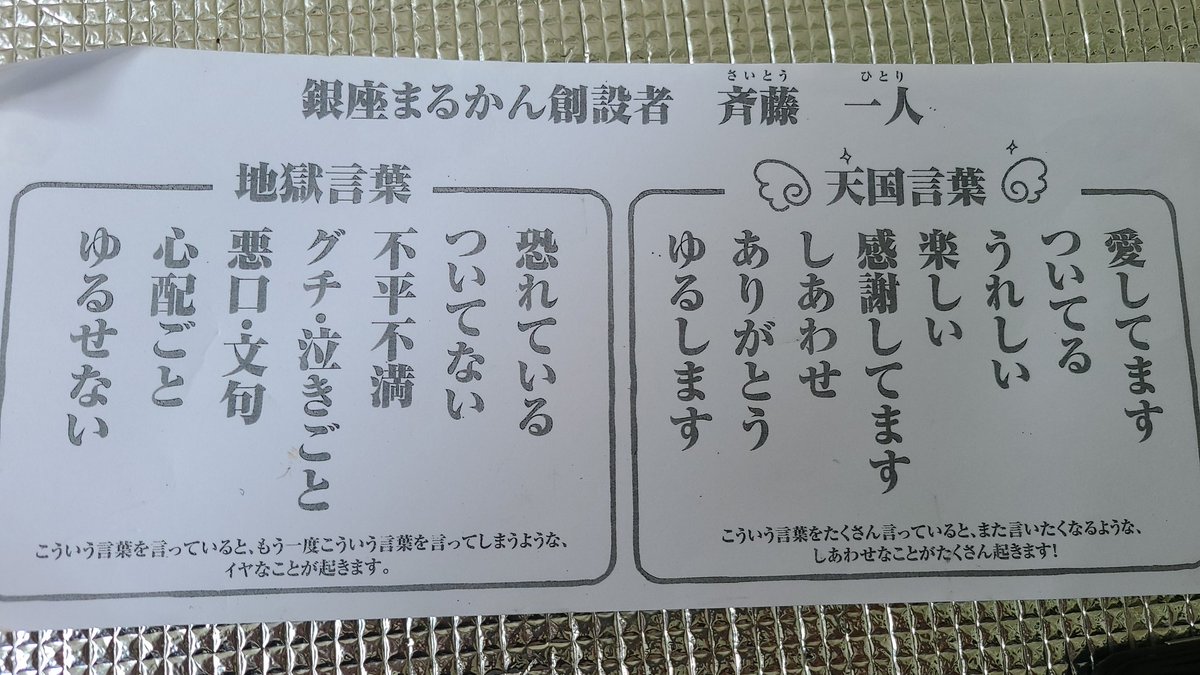 銀座まるかん創設者 斉藤 一人
さいとう ひとり
天国言葉
愛してます
ついてる
うれしい
楽しい
感謝してます
しあわせ
ありがとう
ゆるします
こういう言葉をたくさん言っていると、また言いたくなるような、
しあわせなことがたくさん起きます!
地獄言葉
恐れている
ついてない
不平不満
グチ・泣きごと
悪口・文句
心配ごと
ゆるせない
こういう言葉を言っていると、もう一度こういう言葉を言ってしまうような、
イヤなことが起きます。